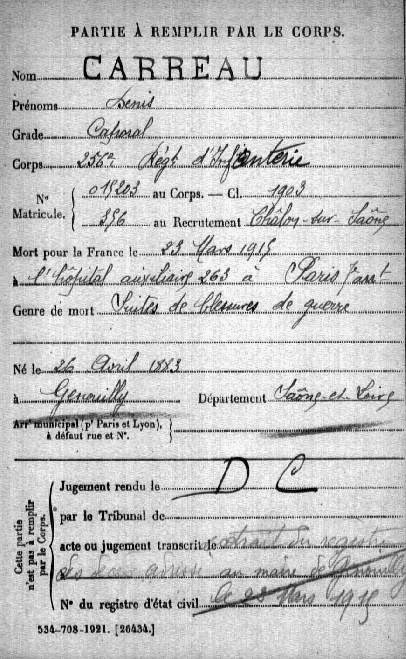 PARTIE À REMPLIR PAR LE CORPS.
Nom CARREAU
Prénoms Denis
Grade Caporal
Corps 256e Régt d'Infanterie
N° Matricule. { 015203 au Corps. — Cl. 1903
896 au Recrutement Châlon-sur-Saône
Mort pour la France le 23 Mars 1915
à l'hôpital auxiliaire 263 à Paris
Genre de mort Suites de blessures de guerre
Né le 26 Avril 1883
à Genouilly Département Saône-et-Loire
Arrt municipal (pr Paris et Lyon), à défaut rue et N°.
Cette partie n'est pas à remplir par le Corps.
Jugement rendu le D C
par le Tribunal de
acte ou jugement transcrit le extrait du registre
des adressé au maire de Genouilly
le 23 Mars 1915
N° du registre d'état civil
534-708-1921. [26434.]